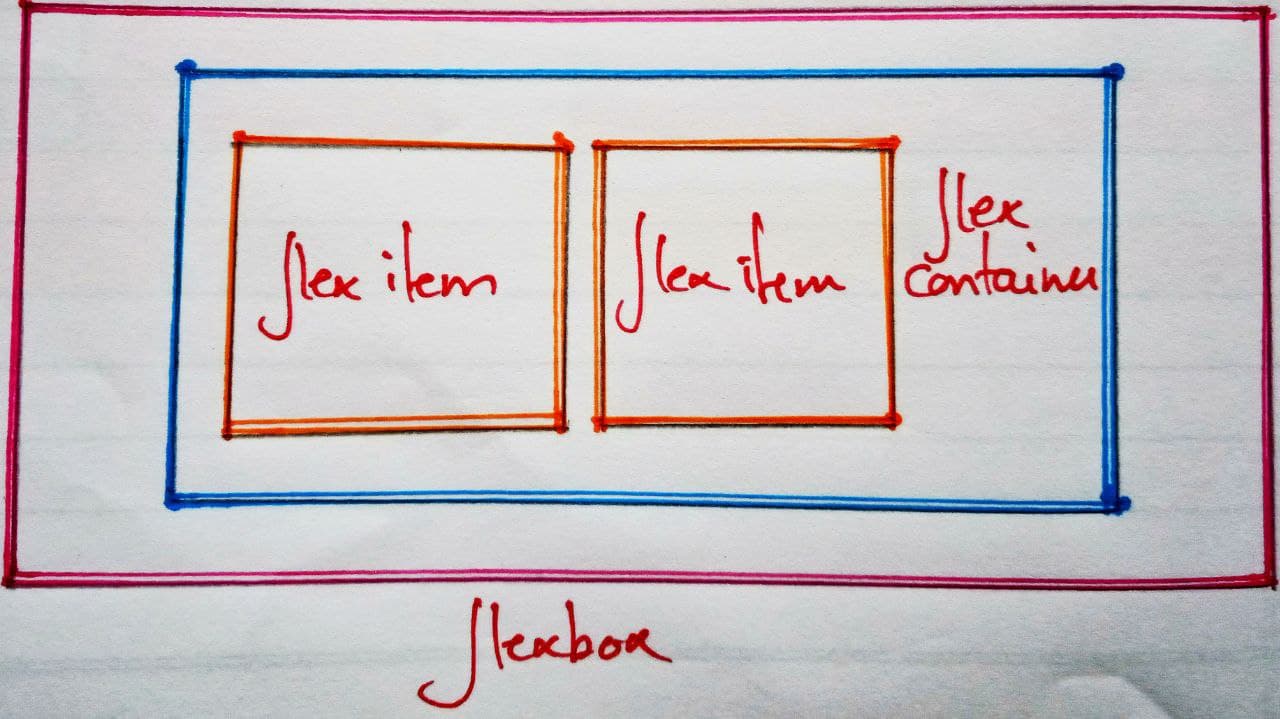 flex item
flex item
flex
container
flexbox